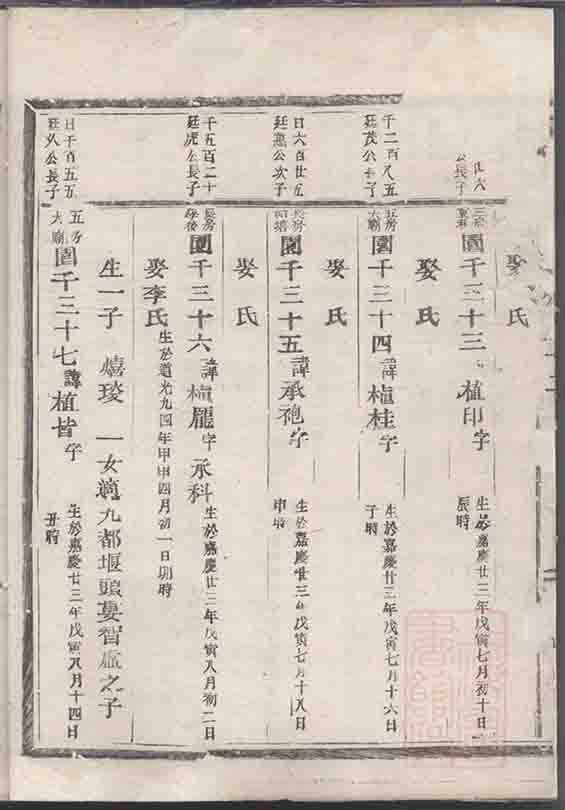 娶氏
公長子
圍千三十三
植印字
生於嘉慶廿三年戊寅七月初十日
辰時
娶氏
千二百八五
廷茂公長子
五房
大廟
圍千三十四諱植桂字
生於嘉慶廿三年戊寅七月十六日
子時
娶氏
日六百廿五
廷惠公次子
長房
圍千三十五諱承袍字
生於嘉慶廿三年戊寅七月十八日
申時
娶氏
千五百二十
廷虎公長子
長房
圍千三十六諱植龍字承科
生於嘉慶廿三年戊寅八月初二日
娶李氏
生於道光九四年甲申四月初一日卯時
生一子熺琰一女適九都堰頭婁智盛之子
日千百五五
廷久公長子
五房
大廟
圍千三十七諱植皆字
生於嘉慶廿三年戊寅八月十四日
丑時